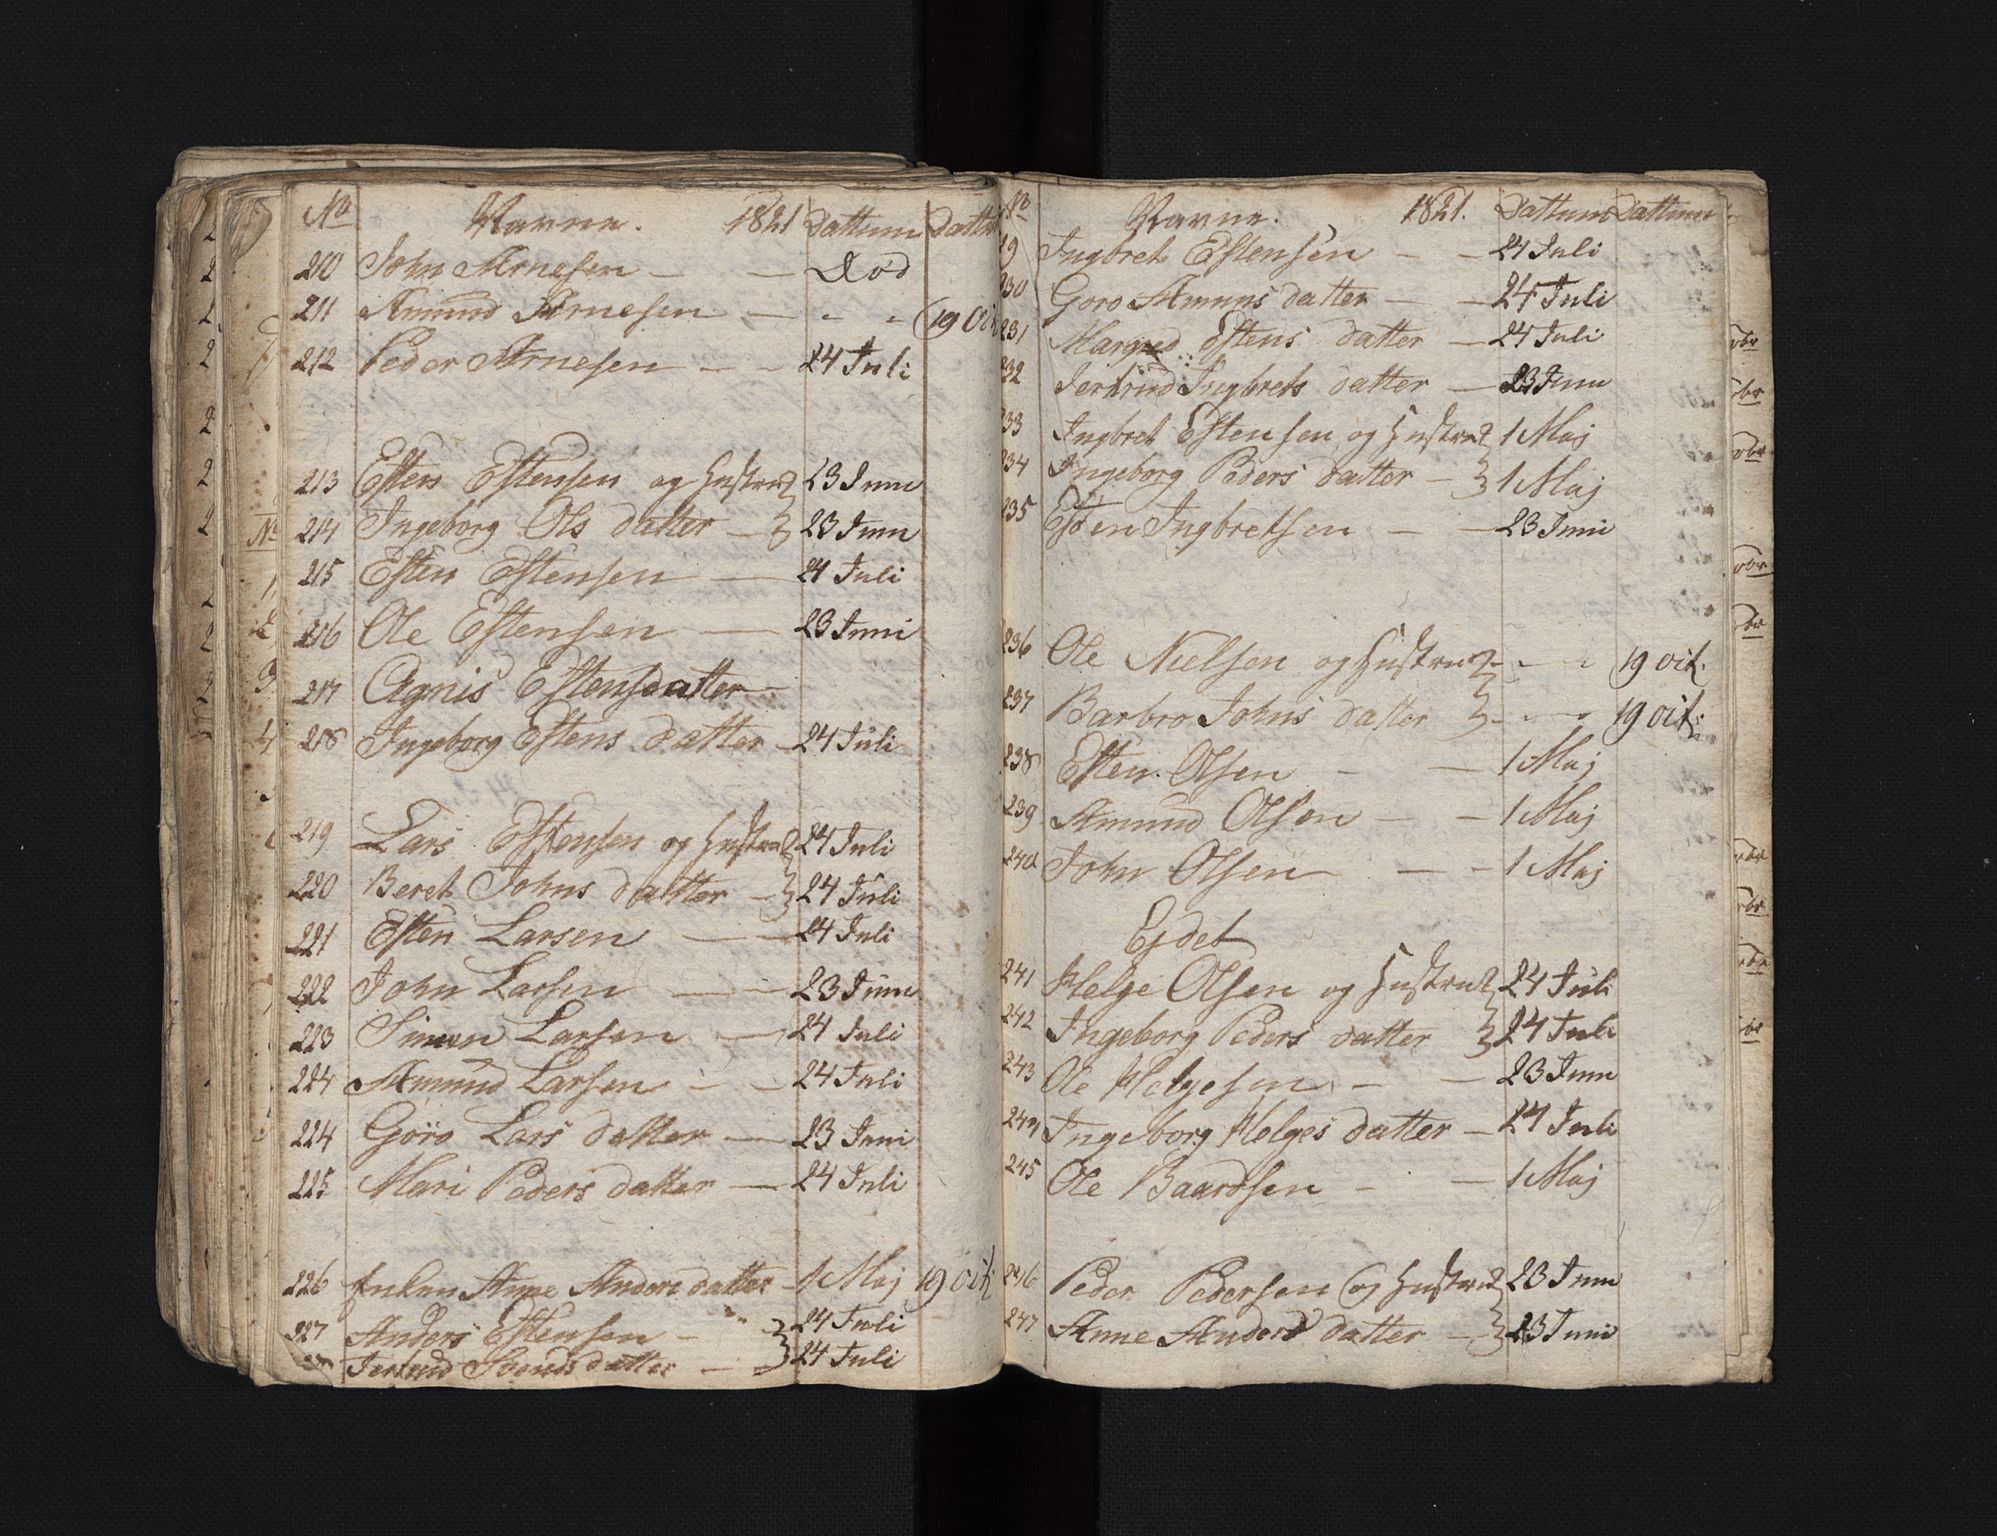 No Navne. 1821 Dattum Dattum
210 John Arnesen — — Død
211 Amund Arnesen — - - 19 Oct
212 Peder Arnesen — - 24 Juli
213 Esten Estensen og Hustrue 23 Juni
214 Ingeborg Ols datter — 23 Juni
215 Esten Estensen — 24 Juli
216 Ole Estensen — 23 Juni
217 Agnis Estensdatter
218 Ingeborg Estens datter - 24 Juli
219 Lars Estensen og Hustrue 24 Juli
220 Beret Johns datter - 24 Juli
221 Esten Larsen — 24 Juli
222 John Larsen — 23 Juni
223 Simen Larsen — 24 Juli
224 Amund Larsen - - 24 Juli
224 Goro Lars datter — 23 Juni
225 Mari Peders datter — 24 Juli
226 Enken Anne Anders datter - 1 Maj 19 oct
227 Anders Estensen - 24 Juli
Jertrud datter - 24 Juli
No Navne. 1821. Dattum Dattum
9 Ingbret Estensen — - 24 Juli
230 Goro Amuns datter — - 24 Juli
231 Margred Estens datter - 24 Juli
232 Jertrud Ingbrets datter — 23 Juni
233 Ingbret Estensen og Hustrue 1 Maj
234 Ingeborg Peders datter - 1 Maj
235 Esten Ingbretsen - — 23 Juni
236 Ole Nielsen og Hustrue - - - 19 oct.
237 Barbro Johns datter - - - 19 oct.
238 Esten Olsen - — 1 Maj
239 Amund Olsen - - 1 Maj
240 John Olsen - - 1 Maj
Ejdet
241 Helge Olsen og Hustrue 24 Juli
242 Ingeborg Peders datter 24 Juli
243 Ole Helgesen - - 23 Juni
244 Ingeborg Helges datter - 24 Juli
245 Ole Baardsen - - 1 Maj
246 Peder Pedersen og Hustrue 23 Juni
247 Anne Anders datter - 23 Juni